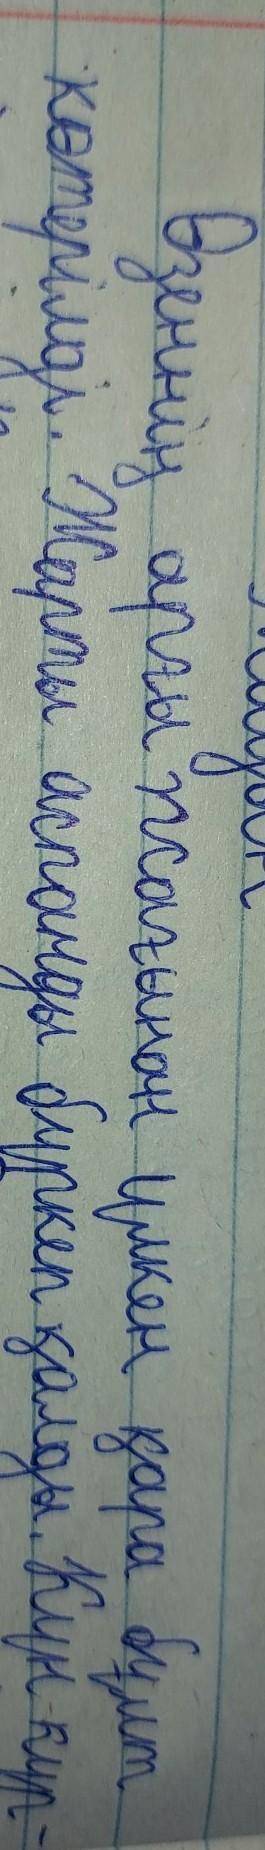 Өзеннің арғы жағынан үлкен қара бұлт
көтерілді. Жарты аспанды бүркеп қалды. Күн күр-